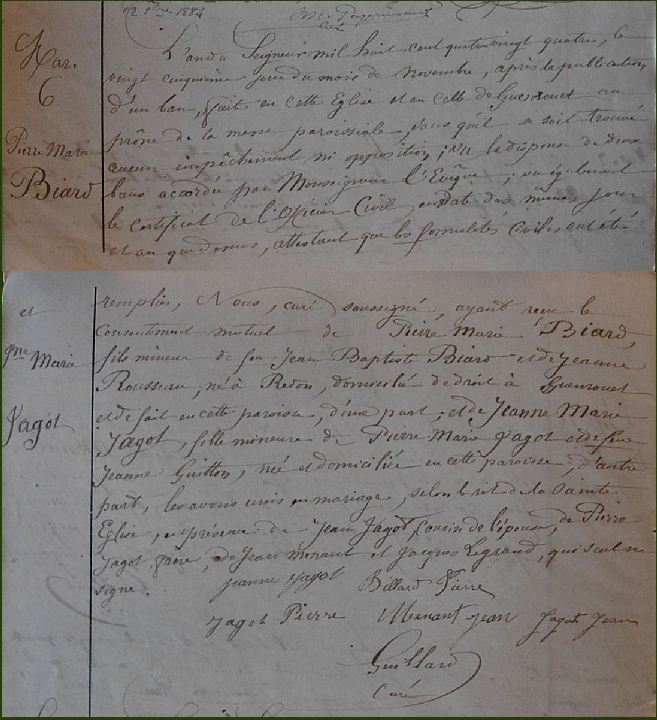 12 9bre 1884
curé
Mar.
6
Pierre Marie
Biard
L'an du Seigneur mil huit cent quatre vingt quatre, le
vingt cinquième jour du mois de Novembre, après la publication
d'un ban, faite en cette Eglise et en celle de Guenrouet au
prône de la messe paroissiale, sans qu'il se soit trouvé
aucun empêchement ni opposition; vu le dispense de deux
bans accordée par Monseigneur l'Evêque; vu également
le certificat de l'Officier Civil, en date des même jour
et an que dessus, attestant que les formalités civiles ont été
et
Jne Marie
Jagot
remplies, Nous, curé soussigné, ayant reçu le
consentement mutuel de Pierre Marie Biard,
fils mineur de feu Jean Baptiste Biard et de Jeanne
Rousseau, né à Redon, domicilié de droit à Guenrouet
et de fait en cette paroisse, d'une part; et de Jeanne Marie
Jagot, fille mineure de Pierre Marie Jagot et de feue
Jeanne Guitton, née et domiciliée en cette paroisse, d'autre
part, les avons unis en mariage, selon le rit de la Sainte
Eglise, en présence de Jean Jagot, cousin de l'épouse, de Pierre
Jagot, frère, de Jean Menant et Jacques Legrand, qui seul ne
signe.
Jeanne Jagot Billard Pierre
Jagot Pierre Menant Jean Jagot Jean
Guillard
Curé